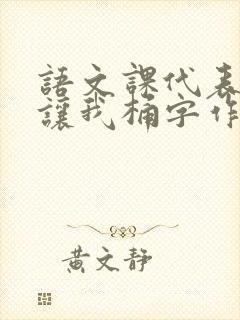 語文課代表
讓我桶字作
黃文靜